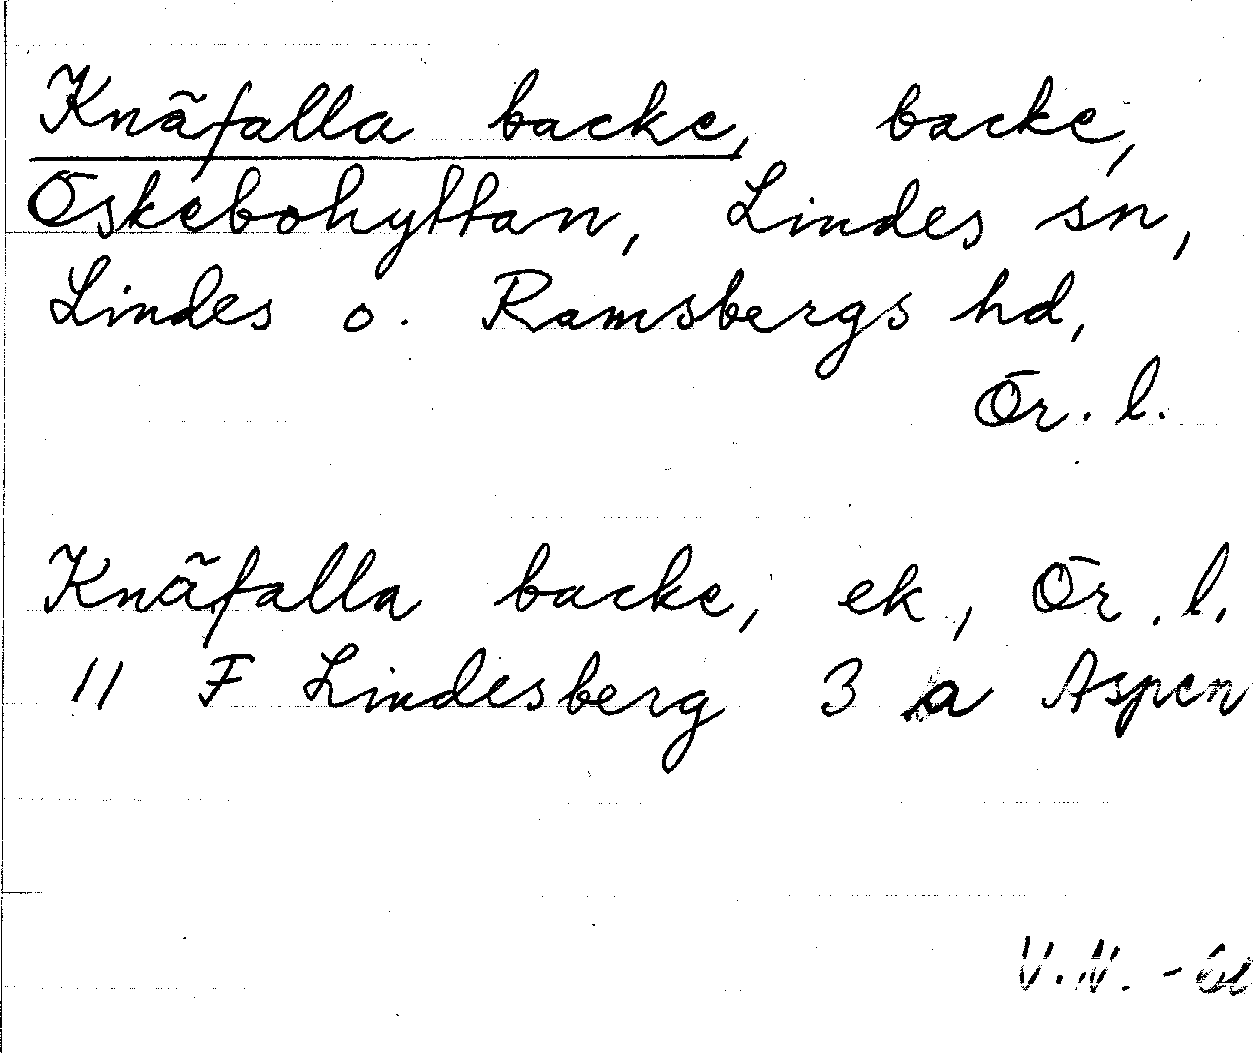 Knäfalla backe, backe,
Öskebohyttan, Lindes sn,
Lindes o. Ramsbergs hd,
Ör. l.
Knäfalla backe, ek, Ör. l.
11 F Lindesberg 3 a Aspen
V.N.